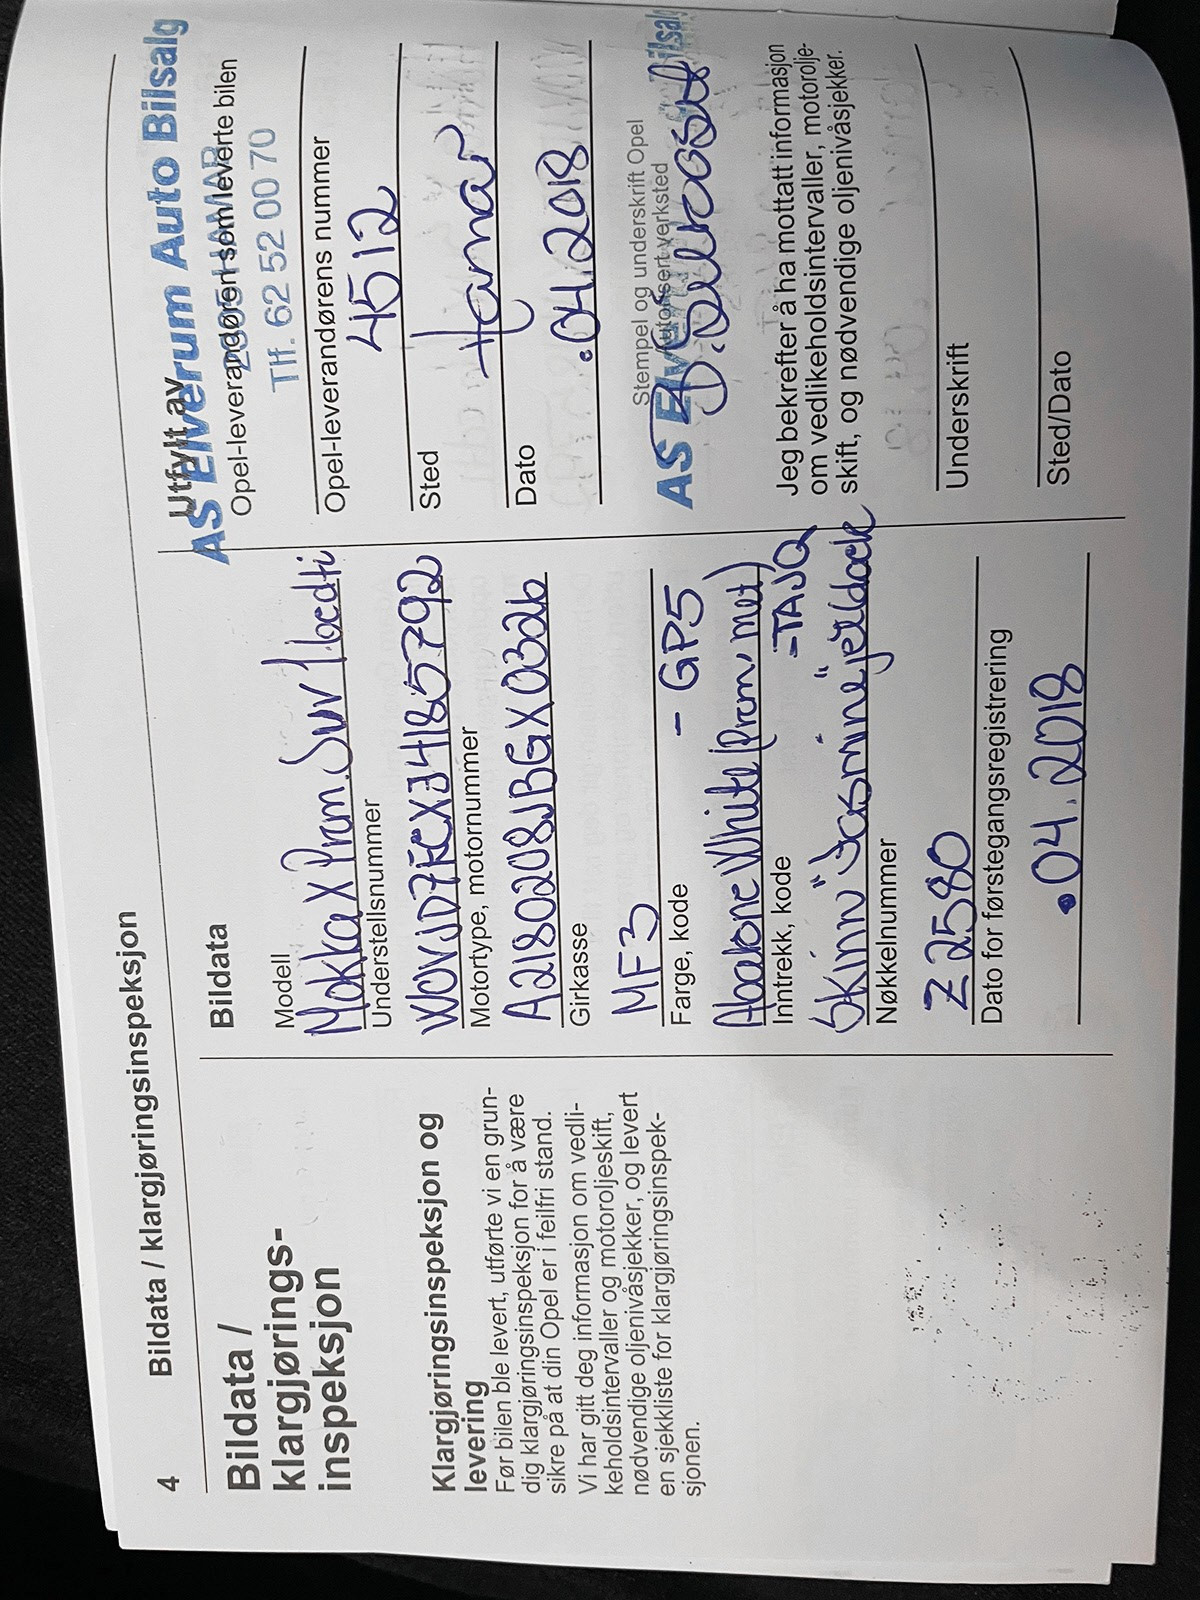 4 Bildata / klargjøringsinspeksjon
Bildata /
klargjørings-
inspeksjon
Klargjøringsinspeksjon og
levering
Før bilen ble levert, utførte vi en grun-
dig klargjøringsinspeksjon for å være
sikre på at din Opel er i feilfri stand.
Vi har gitt deg informasjon om vedli-
keholdsintervaller og motoroljeskift,
nødvendige oljenivåsjekker, og levert
en sjekkliste for klargjøringsinspek-
sjonen.
Bildata
Modell
Mokka X Prem. Suv 1.6cdti
Understellsnummer
W0VJD7FCXJ4185792
Motortype, motornummer
A2180208JBGX0326
Girkasse
MF3
Farge, kode - GP5
Abalone White (Prem. met)
Inntrekk, kode - TAJQ
Skinn "Jasmine"
Nøkkelnummer
Z2580
Dato for førstegangsregistrering
.04.2018
Utfylt av
AS Elverum Auto Bilsalg
Opel-leverandøren som leverte bilen
HAMAR
Tlf. 62 52 00 70
Opel-leverandørens nummer
4512
Sted
Hamar
Dato
.04.2018
Stempel og underskrift Opel
Autorisert verksted
AS Bilsalg
Jeg bekrefter å ha mottatt informasjon
om vedlikeholdsintervaller, motorolje-
skift, og nødvendige oljenivåsjekker.
Underskrift
Sted/Dato